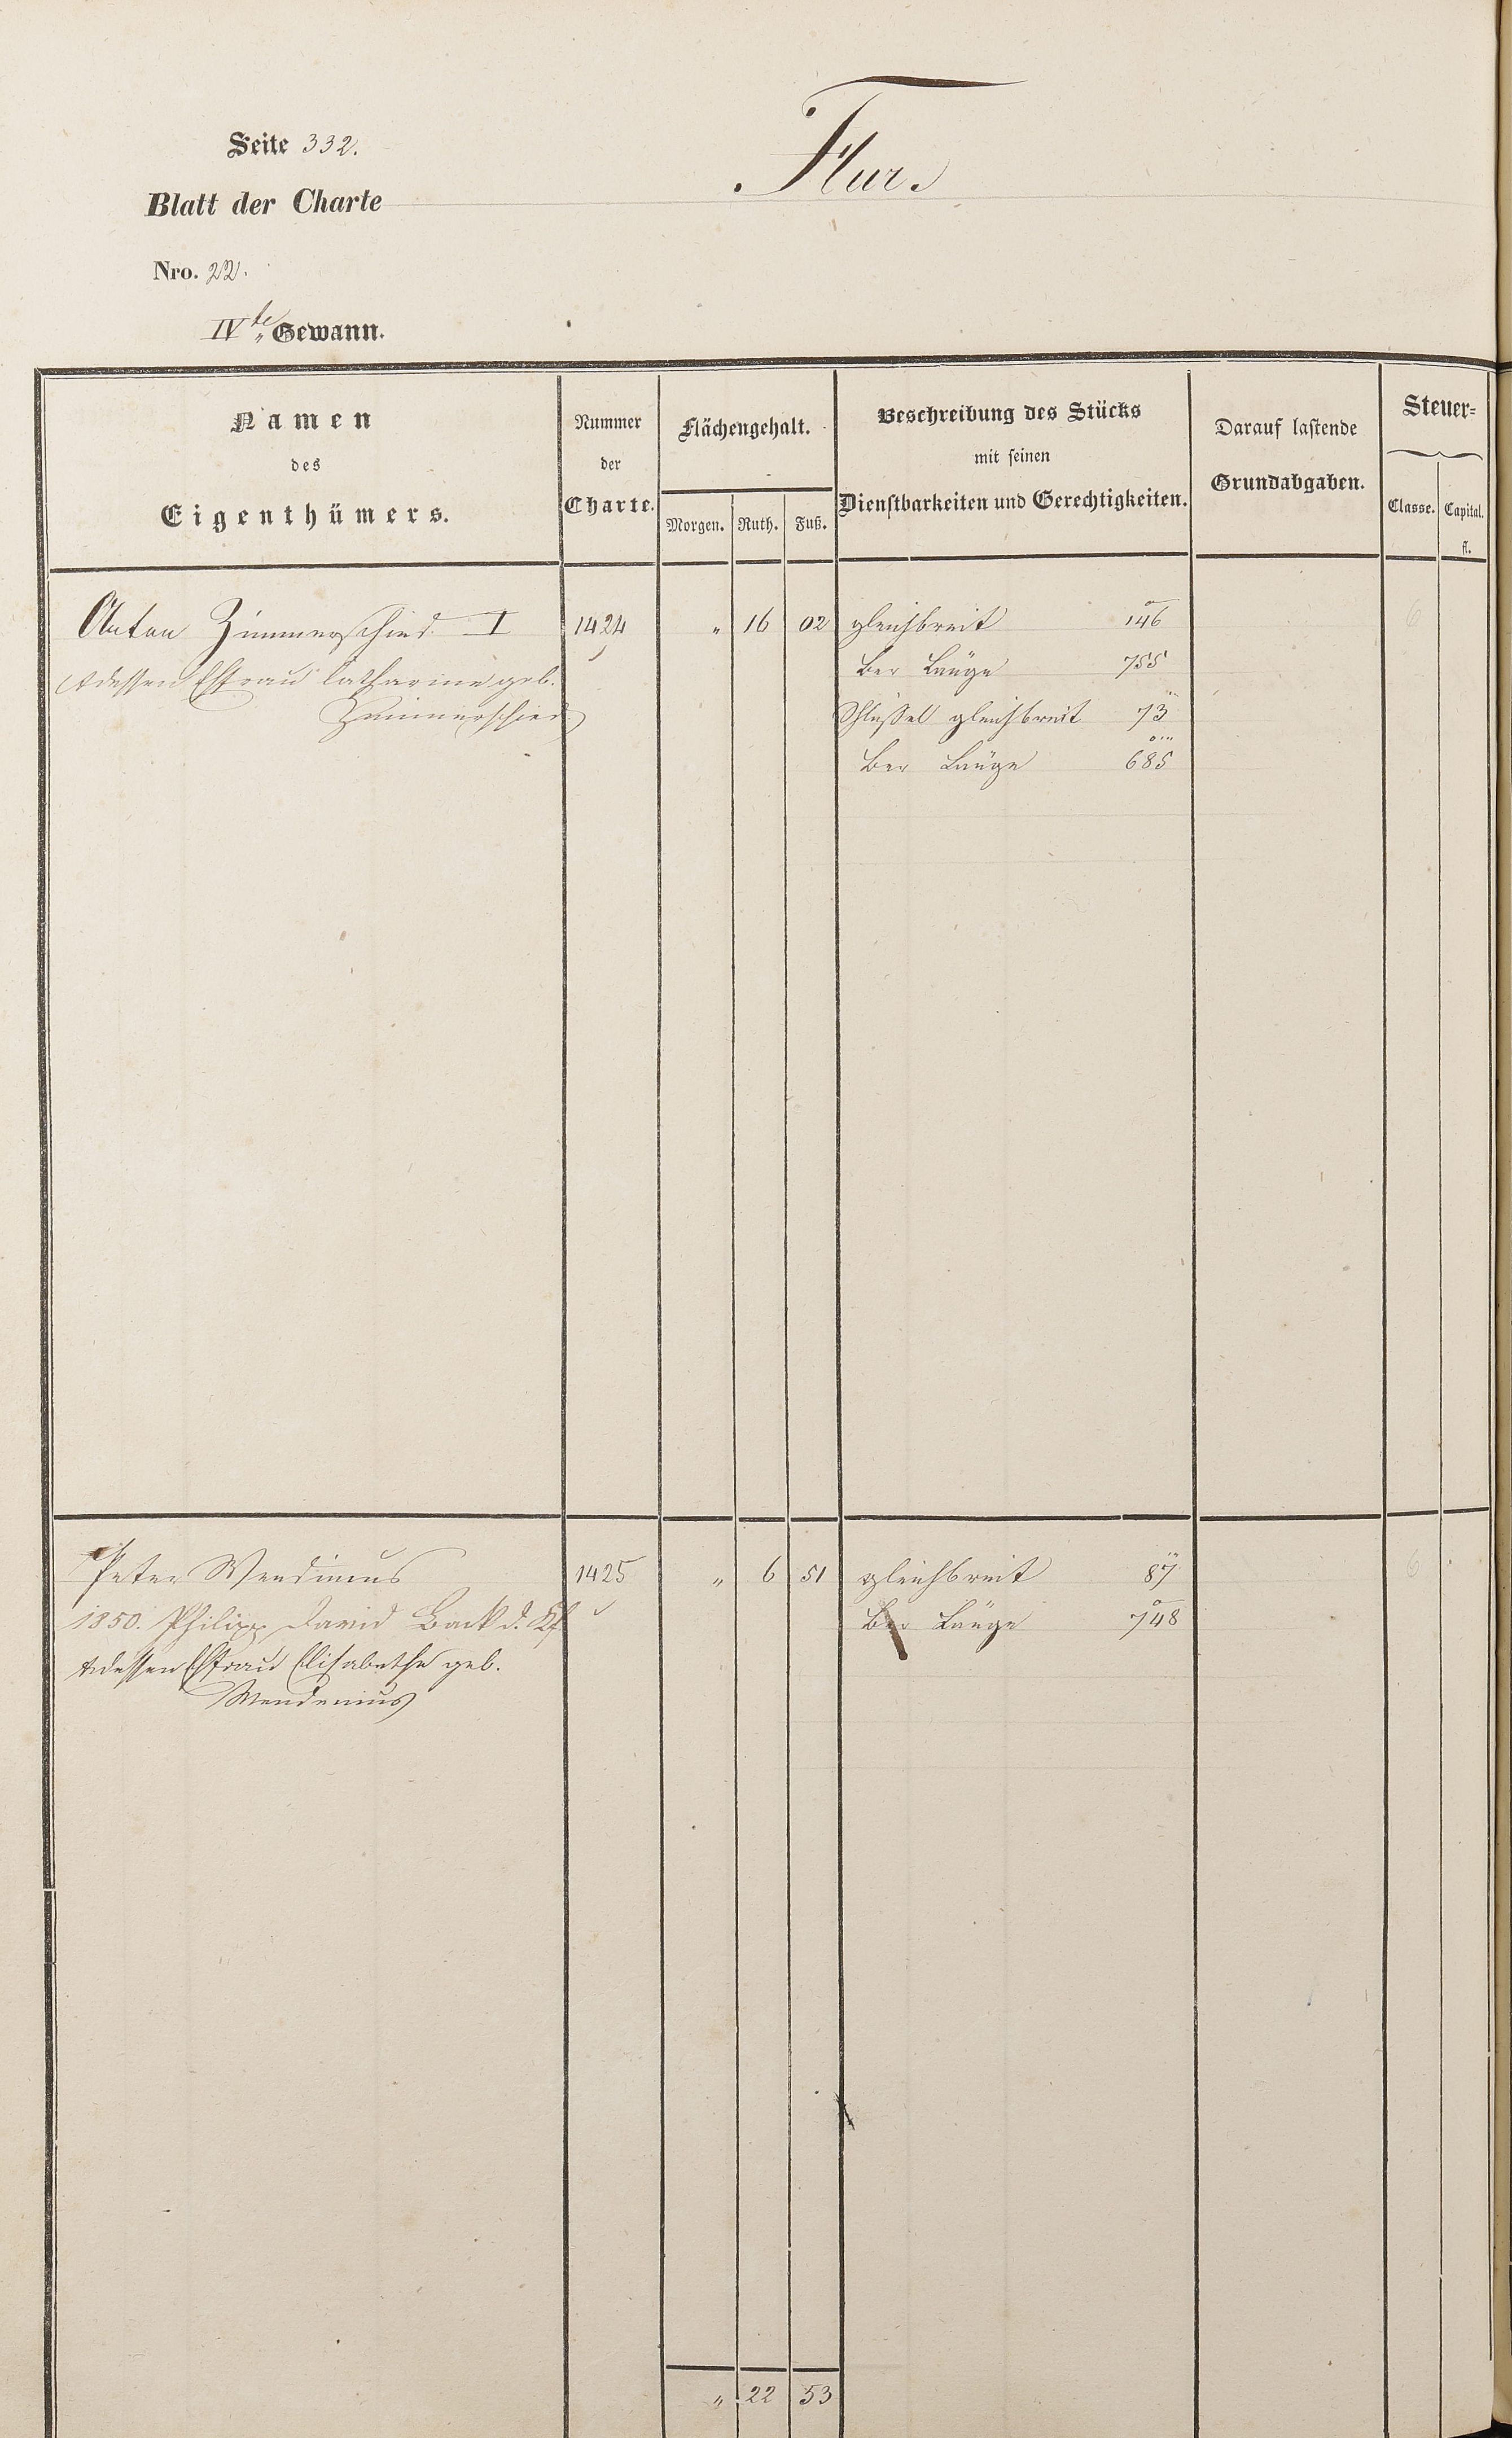 Flur.
Seite 332.
Blatt der Charte
Nro. 22.
IVte Gewann.
Namen des Eigenthümers.
Nummer der Charte.
Flächengehalt.
Morgen. Ruth. Fuß.
Beschreibung des Stücks
mit seinen
Dienstbarkeiten und Gerechtigkeiten.
Darauf lastende
Grundabgaben.
Steuer=
Classe. Capital.
fl.
Anton Zimmerschied I 1424 " 16 02 gleichbreit 146 6
dessen Ehfrau Catharine geb. Ber Länge 755
Zimmerschied Schlüssel gleichbreit 73
Ber Länge 685
Peter Wendinius 1425 " 6 51 gleichbreit 87 6
1850. Philipp David Back d. Ber Länge 748
dessen Ehfrau Elisabethe geb.
Wendenius
" 22 53